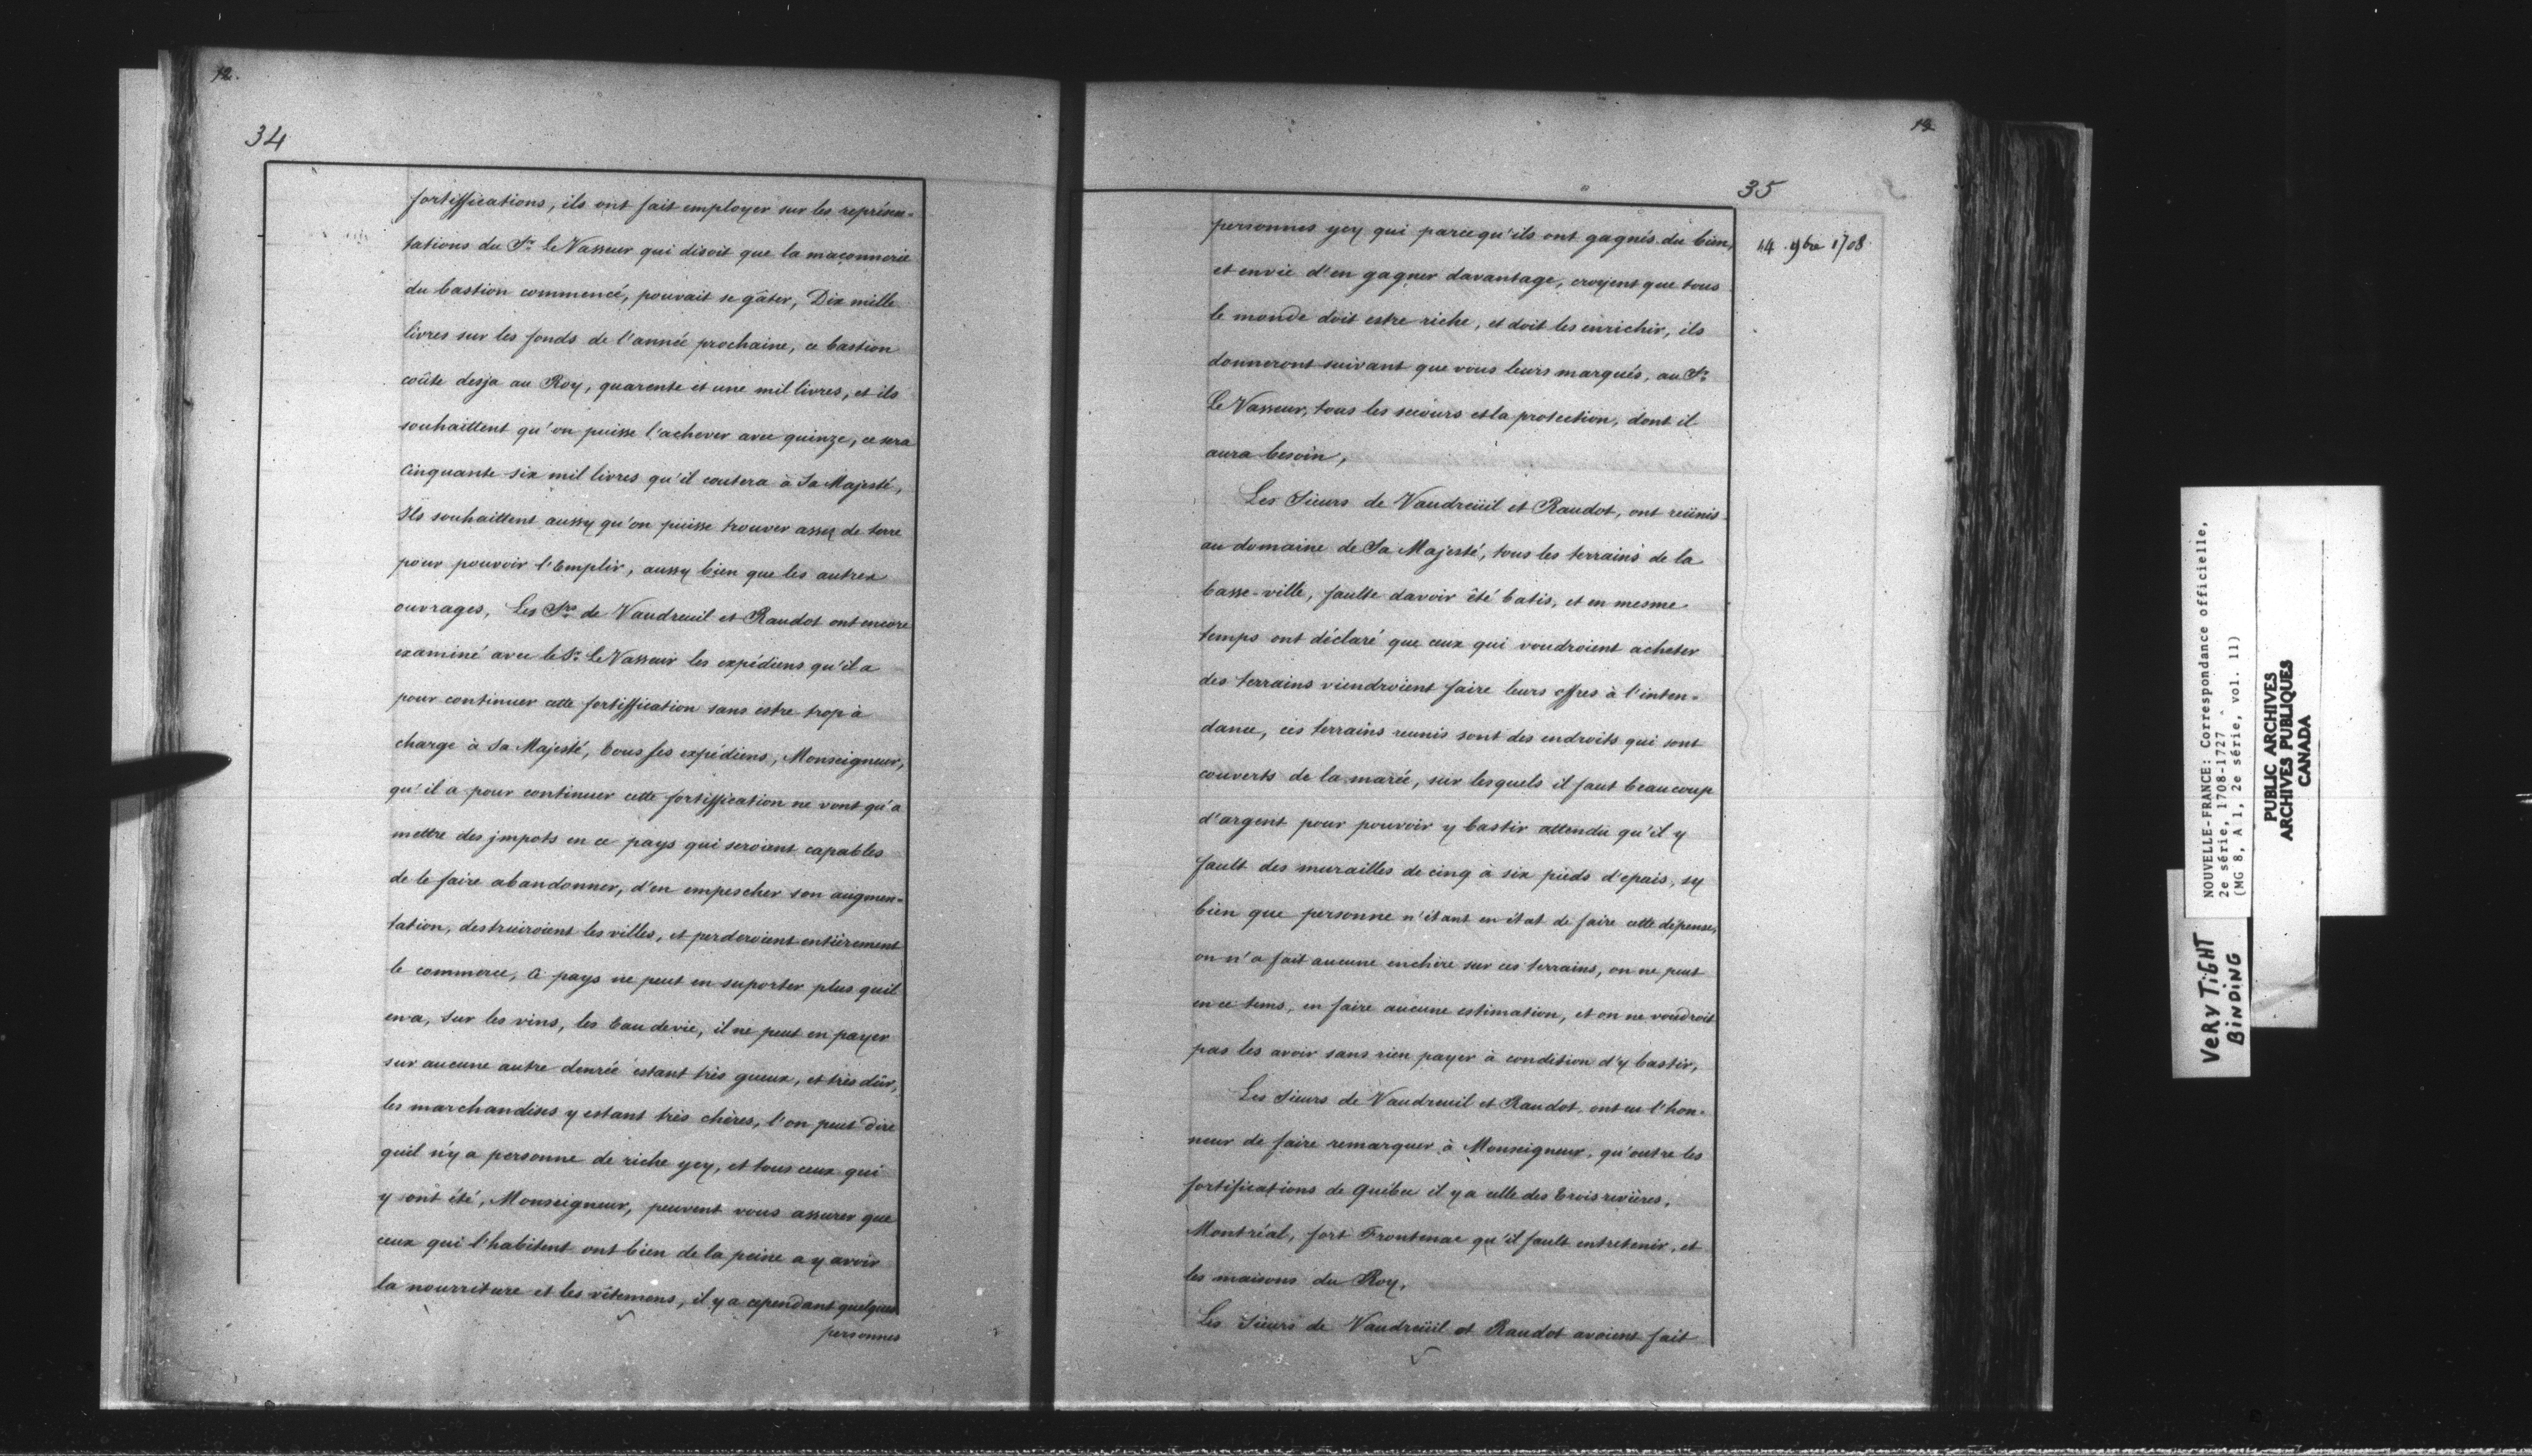 12.
34
fortiffications, ils ont fait employer sur les représen=
tations du Sr. Le Vasseur qui disoit que la maçonnerie
du bastion commencé, pouvait se gâter, Dix mille
livres sur les fonds de l'année prochaine, ce bastion
coûte desja au Roy, quarente et une mil livres, et ils
souhaittent qu'on puisse l'achever avec quinze, ce sera
Cinquante six mil livres qu'il coutera à Sa Majesté,
Ils souhaittent aussy qu'on puisse trouver assez de terre
pour pouvoir l'Emplir, aussy bien que les autres
ouvrages, Les Srs de Vaudreuil et Raudot ont encore
examiné avec le Sr. Le Vasseur les expédiens qu'il a
pour continuer cette fortiffication sans estre trop à
charge à Sa Majesté, tous ses expédiens, Monseigneur,
qu'il a pour continuer cette fortiffication ne vont qu'a
mettre des jmpots en ce pays qui seroient capables
de le faire abandonner, d'en empescher son augmen=
tation, destruiroient les villes, et perderoient entièrement
le commerce, Ce pays ne peut en suporter plus quil
en a, sur les vins, les Eau de vie, il ne peut en payer
sur aucune autre denrée estant très gueux, et très dûr,
les marchandises y estant très chères, l'on peut dire
quil n'y a personne de riche ycy, et tous ceux qui
y ont été, Monseigneur, peuvent vous assurer que
ceux qui l'habitent ont bien de la peine a y avoir
la nourriture et les vêtemens, il y a cependant quelques
personnes
13
35
14 9bre 1708
personnes ycy qui parcequ'ils ont gagnés du bien,
et envie d'en gagner davantage, croyent que tous
le monde doit estre riche, et doit les enrichir, ils
donneront suivant que vous leurs marqués, au Sr.
Le Vasseur, tous les secours et la protection, dont il
aura besoin,
Les Sieurs de Vaudreüil et Raudot, ont reünis
au domaine de Sa Majesté, tous les terrains de la
basse-ville, faulte davoir été batis, et en mesme
temps ont déclaré que ceux qui voudroient acheter
des terrains viendroient faire leurs offres à l'inten=
dance, ces terrains reunis sont des endroits qui sont
couverts de la marée, sur lesquels il faut beaucoup
d'argent pour pouvoir y bastir attendu qu'il y
fault des murailles de cinq à six pieds d'epais, sy
bien que personne n'étant en état de faire cette dépense,
on n'a fait aucune enchere sur ces terrains, on ne peut
en ce tems, en faire aucune estimation, et on ne voudroit
pas les avoir sans rien payer à condition d'y bastir,
Les Sieurs de Vaudreuil et Raudot, ont eu l'hon=
neur de faire remarquer à Monseigneur, qu'outre les
fortifications de Québec il y a celle des trois rivières,
Montréal, fort Frontenac qu'il fault entretenir, et
les maisons du Roy,
Les Sieurs de Vaudreüil et Raudot avoient fait
NOUVELLE-FRANCE: Correspondance officielle,
2e série, 1708-1727
(MG 8, A 1, 2e série, vol. 11)
PUBLIC ARCHIVES
ARCHIVES PUBLIQUES
CANADA
VERY TIGHT
BINDING